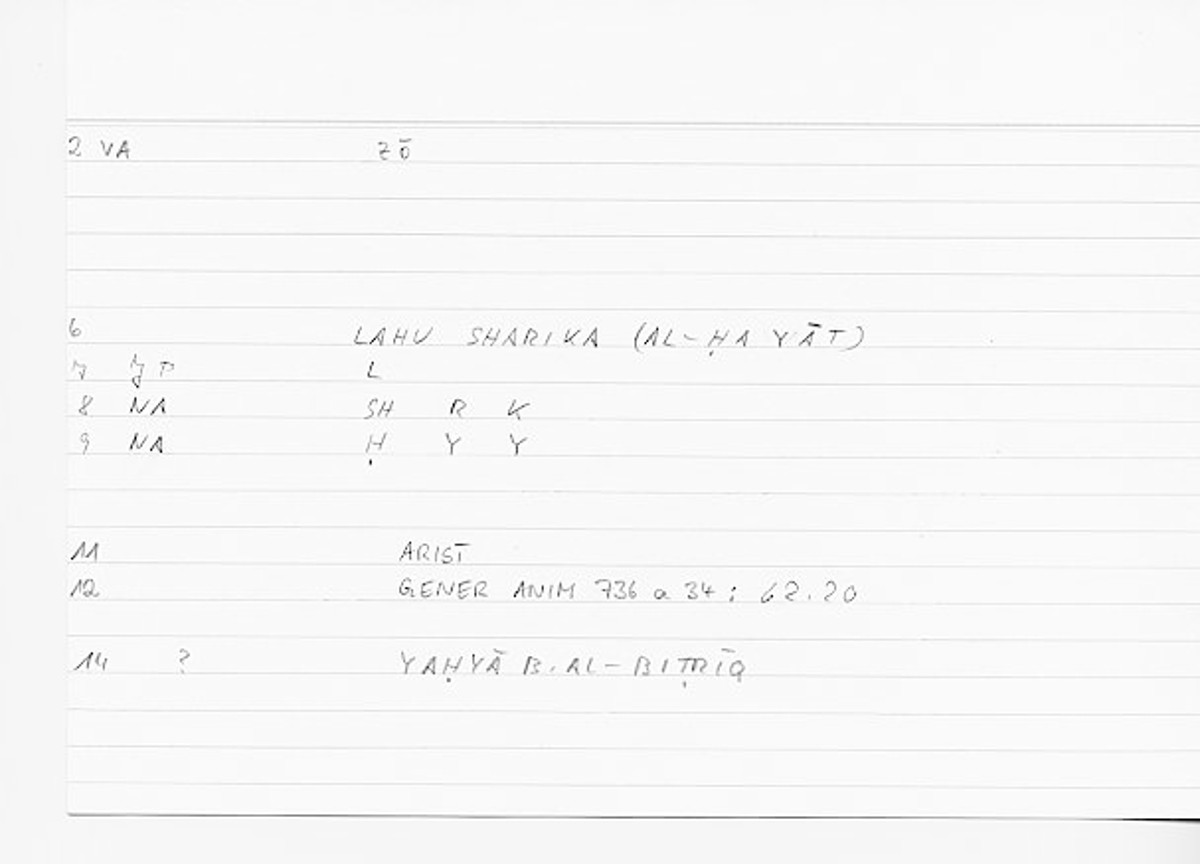 2 VA ZŌ
6 LAHU SHARIKA (AL-ḤAYĀT)
7 JP L
8 NA SH R K
9 NA Ḥ Y Y
11 ARIST
12 GENER ANIM 736 a 34 ; 62.20
14 ? YAḤYĀ B. AL-BIṬRĪQ